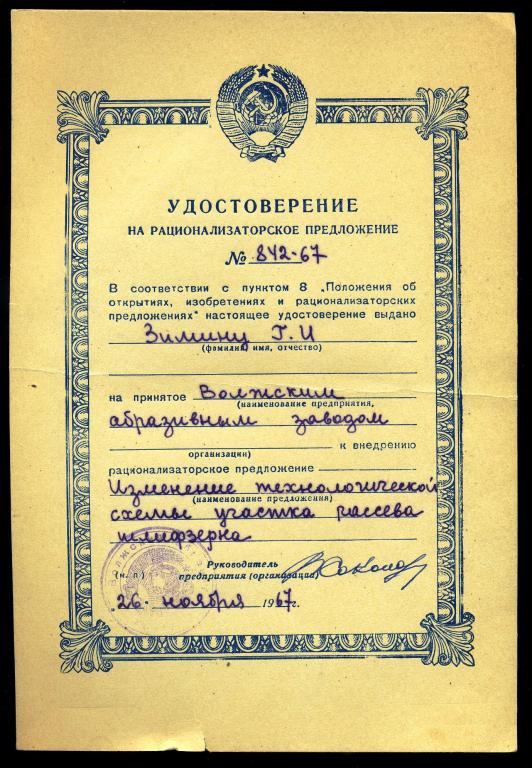 УДОСТОВЕРЕНИЕ
НА РАЦИОНАЛИЗАТОРСКОЕ ПРЕДЛОЖЕНИЕ
№ 842-67
В соответствии с пунктом 8 „Положения об
открытиях, изобретениях и рационализаторских
предложениях" настоящее удостоверение выдано
Зимину Г.И
(фамилия, имя, отчество)
на принятое Волжским
(наименование предприятия,
абразивным заводом
к внедрению
организации)
рационализаторское предложение
Изменение технологической
(наименование предложения)
схемы участка рассева
шлифзерна
Руководитель
(м. п.) предприятия (организации)
26 ноября 1967г.